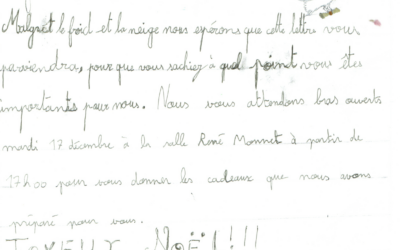 Malgret le froid et la neige nous espérons que cette lettre vous
parviendra, pour que vous sachiez à quel point vous êtes
importants pour nous. Nous vous attendons bras ouverts
mardi 17 décembre à la salle René Monnet à partir de
17h00 pour vous donner les cadeaux que nous avons
préparé pour vous.
JOYEUX NOËL!!!